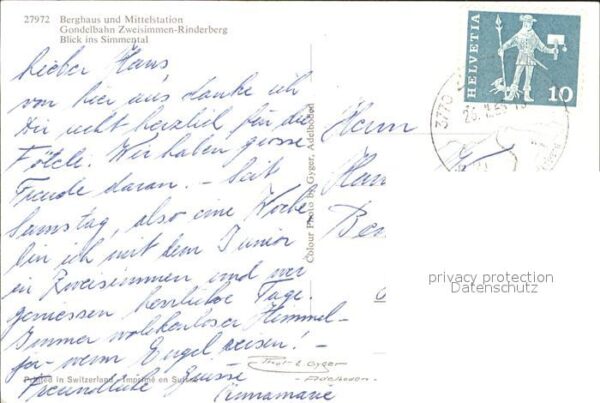 27972 Berghaus und Mittelstation
Gondelbahn Zweisimmen-Rinderberg
Blick ins Simmental
HELVETIA
10
3770
Lieber Hans
von hier aus danke ich
Dir recht herzlich für die
Föteli. Wir haben grosse
Freude daran. - Seit
Samstag, also eine Woche
bin ich mit dem Junior
in Zweisimmen und wir
geniessen herrliche Tage.
Immer wolkenloser Himmel -
ja - wenn Engel reisen! -
Freundliche Grüsse
Annamarie
Herrn
Colour Photo by Gyger, Adelboden
privacy protection
Datenschutz
Printed in Switzerland - Imprimé en Suisse
Gyger
Adelboden